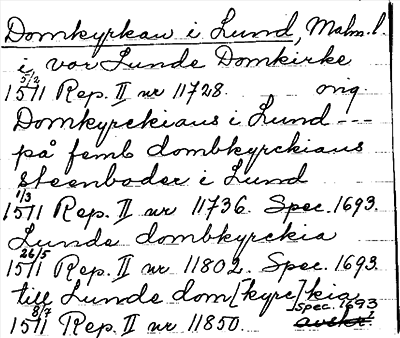 Domkyrkan i Lund, Malm. l.
i vor Lunde Domkirke
5/2 1511 Rep. II nr 11728. orig.
Domkyrckians i Lund ---
på femb dombkyrckians
steenboder i Lund
1/3 1511 Rep. II nr 11736. Spec. 1693.
Lunde dombkyrckia
26/5 1511 Rep. II nr 11802. Spec. 1693.
till Lunde dom[kyrc]kia
8/7 1511 Rep. II nr 11850. Spec. 1693